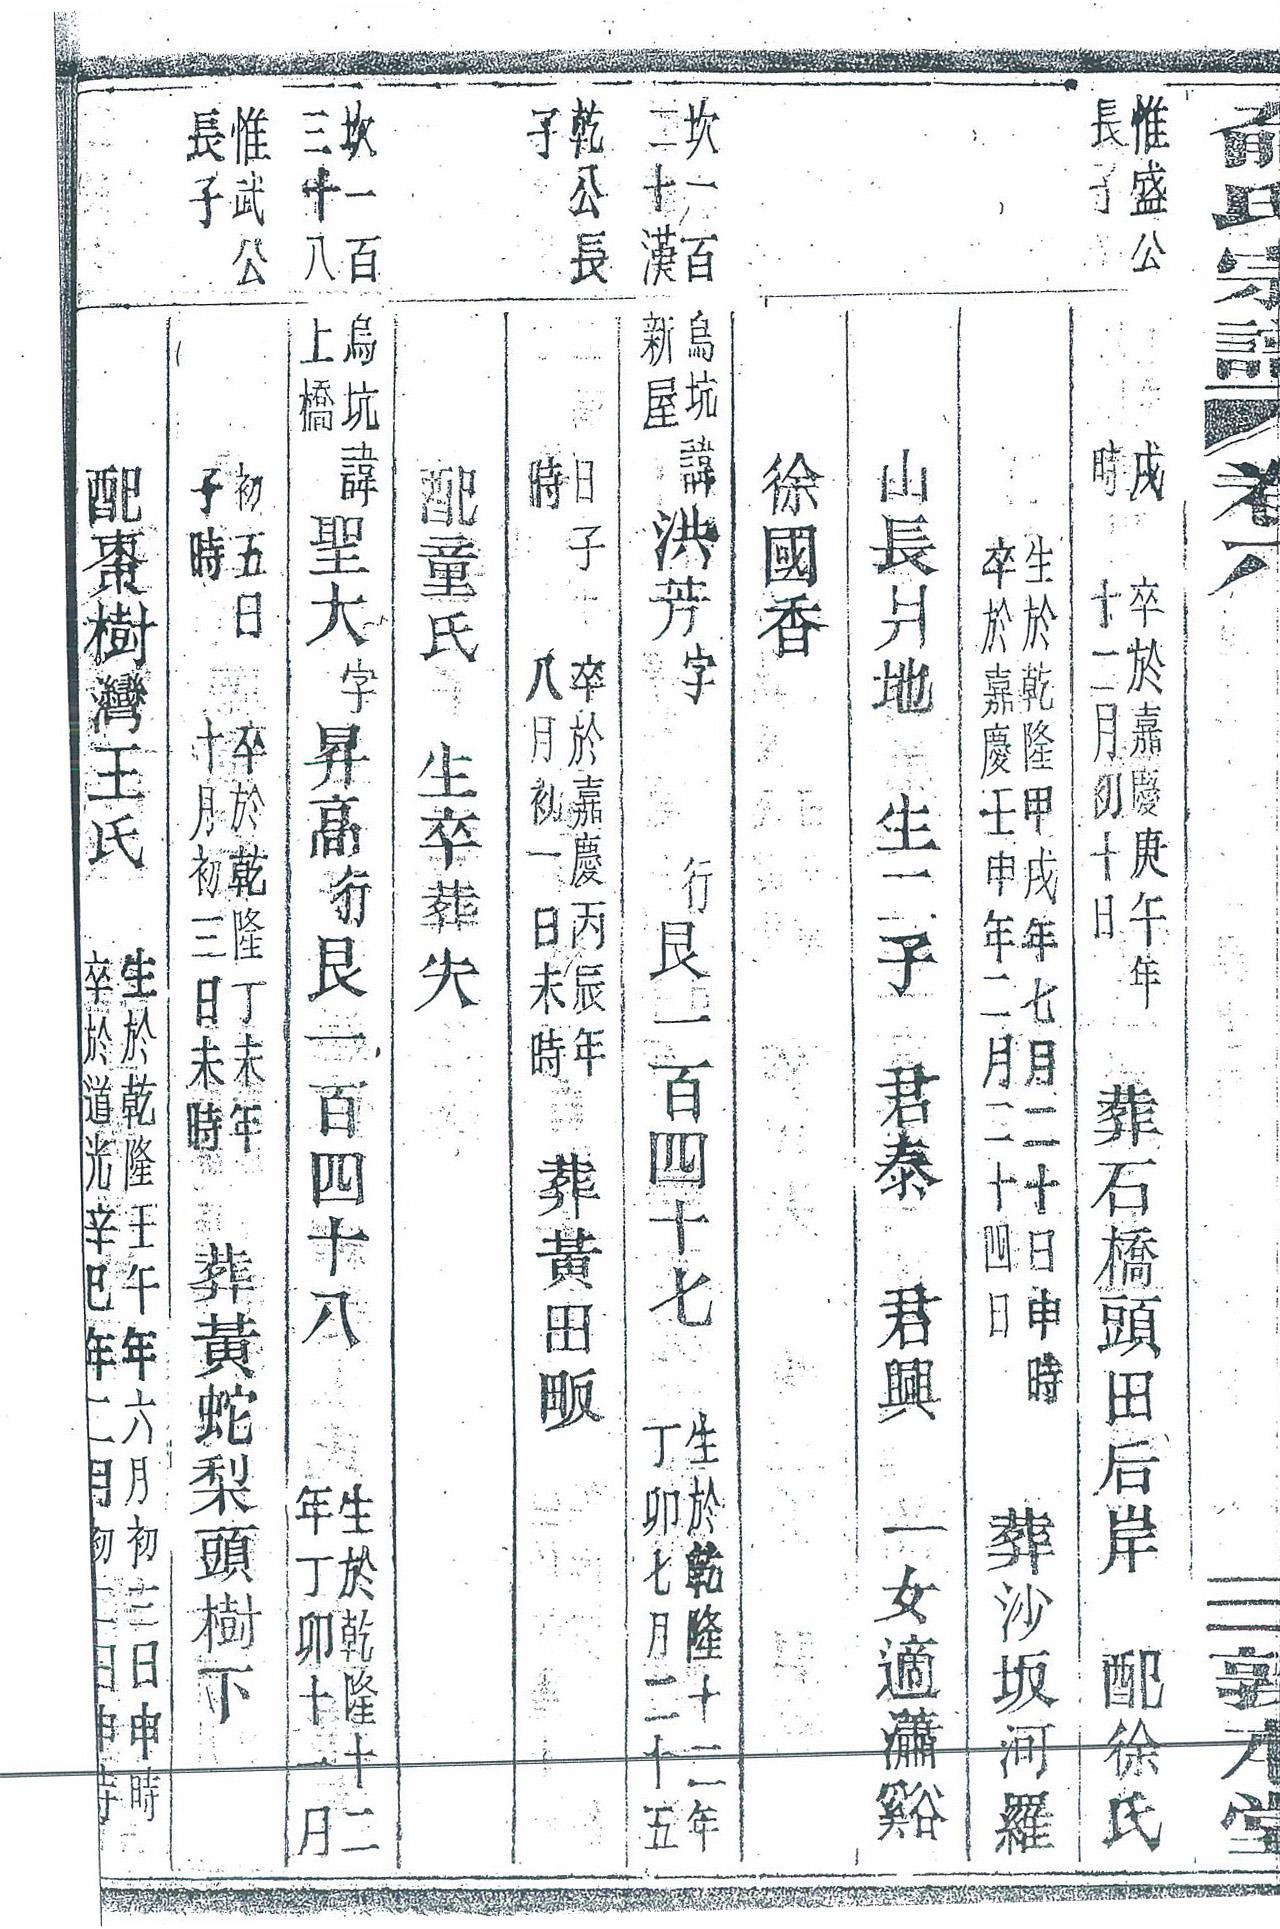 俞氏宗譜 卷六 三 敦本堂
惟盛公
長子
戌
時
卒於嘉慶庚午年
十二月初十日
葬石橋頭田后岸 配徐氏
生於乾隆甲戌年七月二十日申時
卒於嘉慶壬申年二月二十四日
葬沙坂河羅
山長爿地 生二子 君泰 君興 一女適瀟谿
徐國香
坎一百
二十漢
烏坑
新屋
諱洪芳字 行艮一百四十七
生於乾隆十二年
丁卯七月二十五
乾公長
子
日子
時
卒於嘉慶丙辰年
八月初一日未時
葬黃田畈
配童氏 生卒葬失
坎一百
三十八
烏坑
上橋
諱聖大字昇高行艮一百四十八
生於乾隆十二
年丁卯十一月
惟武公
長子
初五日
子時
卒於乾隆丁未年
十月初三日未時
葬黃蛇梨頭樹下
配棗樹灣王氏
生於乾隆壬午年六月初三日申時
卒於道光辛巳年二月初二日申時